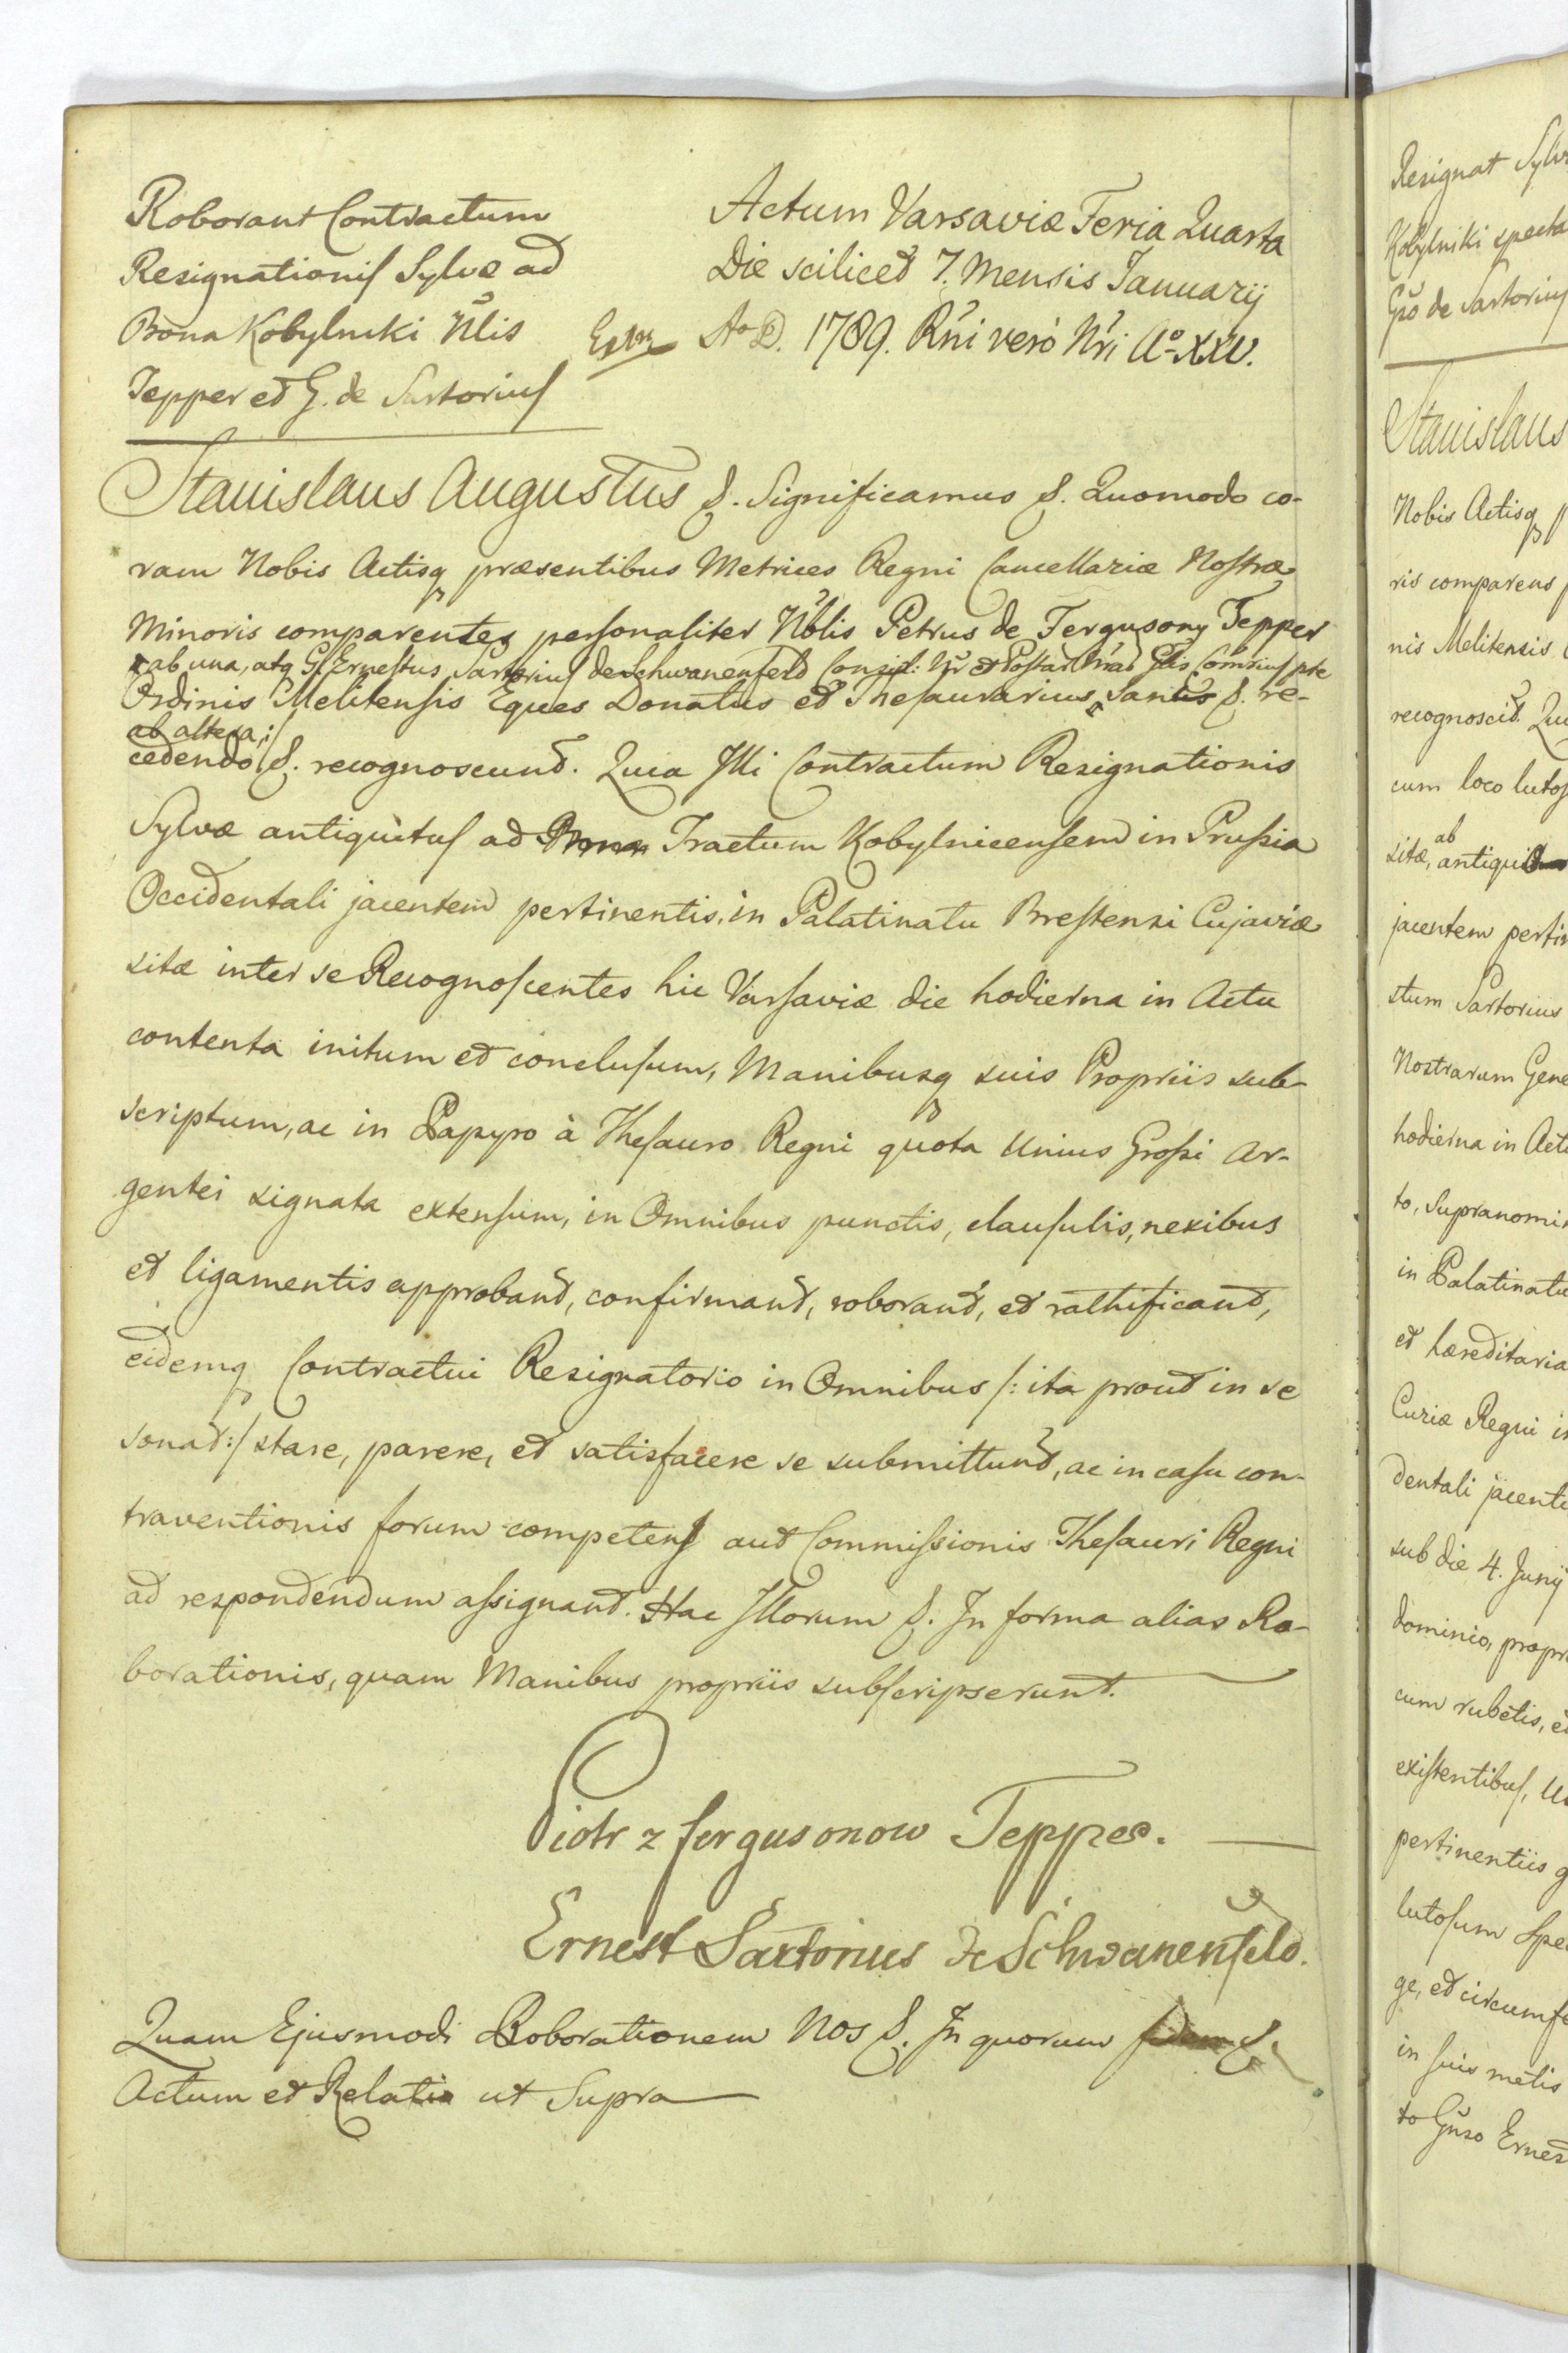 Roborant Contractum
Resignationis Sylvæ ad
Bona Kobylniki Nlis
Tepper et G. de Sartorius
Actum Varsaviæ Feria Quarta
Die scilicet 7. Mensis Januarij
Extr. Ao D. 1789. Rni verò Nri Ao XXV.
Stanislaus Augustus &. Significamus &. Quomodo co-
ram Nobis Actisq præsentibus Metrices Regni Cancellariæ Nostræ
Minoris comparentes personaliter Nblis Petrus de Fergusony Tepper
ab una, atq G. Ernestus Sartorius de Schwanenfeld Consil: Nr et Postar
Ordinis Melitensis Eques Donatus et Thesaurarius, sanis &. re-
ab altera;
cedendo &. recognoscunt. Quia Illi Contractum Resignationis
Sylvæ antiquitus ad Tractum Kobylnicensem in Prussia
Occidentali jacentem pertinentis, in Palatinatu Brestensi Cujaviæ
sitæ inter se Recognoscentes hic Varsaviæ die hodierna in Actu
contenta initum et conclusum, Manibusq suis Propriis sub-
scriptum, ac in Papyro à Thesauro Regni quota Unius Grossi Ar-
gentei signata extensum, in Omnibus punctis, clausulis, nexibus
et ligamentis approbant, confirmant, roborant, et rathificant,
eidemq Contractui Resignatorio in Omnibus /: ita prout in se
sonat :/ stare, parere, et satisfacere se submittunt, ac in casu con-
traventionis forum competens aut Commissionis Thesauri Regni
ad respondendum assignant. Hac Illorum &. In forma alias Ro-
borationis, quam Manibus propriis subscripserunt.
Piotr z fergusonow Tepper.
Ernest Sartorius de Schwanenfeld.
Quam Ejusmodi Roborationem Nos &. In quorum fidem &.
Actum et Relatio ut Supra
Resignat Sylv
Kobylniki specta
Gso de Sartorius
Stanislaus
Nobis Actisq p
ris comparens p
nis Melitensis
recognoscit. Qu
cum loco lutos
ab
sitæ, antiqui
jacentem perti
stum Sartorius
Nostrarum Gene
hodierna in Act
to, supranomi
in Palatinatu
et hæreditaria
Curiæ Regni i
dentali jacent
sub die 4. Junij
dominio, propr
cum rubetis, e
existentibus, u
pertinentiis q
lutosum Spe
ge, et circumfe
in suis metis
to Gnso Ernes